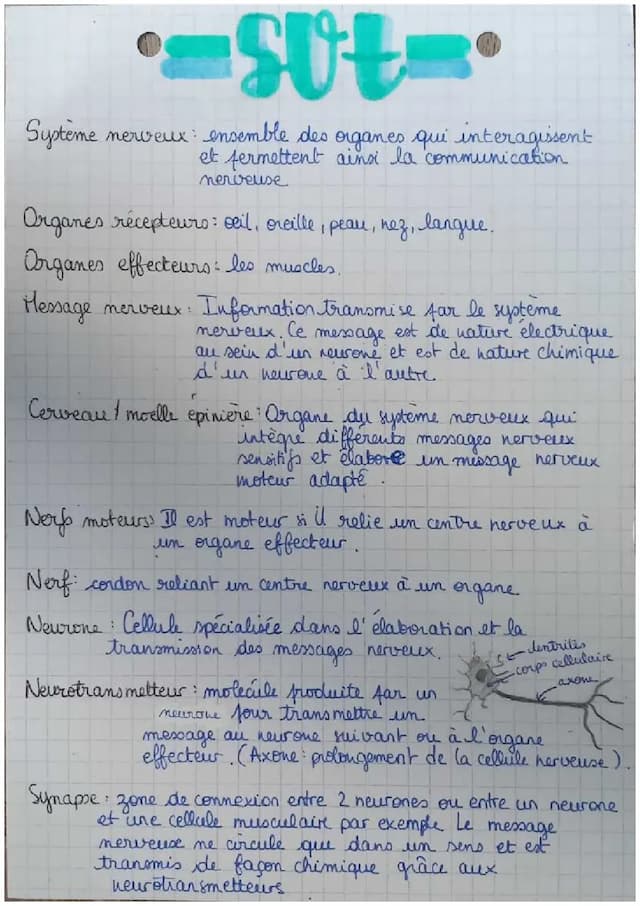 svt
Système nerveux : ensemble des organes qui interagissent
et permettent ainsi la communication
nerveuse
Organes récepteurs : oeil, oreille, peau, nez, langue.
Organes effecteurs : les muscles.
Message nerveux : Information transmise par le système
nerveux. Ce message est de nature électrique
au sein d'un neurone et est de nature chimique
d'un neurone à l'autre.
Cerveau / moelle épinière : Organe du système nerveux qui
intègre différents messages nerveux
sensitifs et élabore un message nerveux
moteur adapté.
Nerfs moteurs : Il est moteur si il relie un centre nerveux à
un organe effecteur.
Nerf : cordon reliant un centre nerveux à un organe
Neurone : Cellule spécialisée dans l'élaboration et la
transmission des messages nerveux.
dentrites
corps cellulaire
axone
Neurotransmetteur : molécule produite par un
neurone pour transmettre un
message au neurone suivant ou à l'organe
effecteur. (Axone : prolongement de la cellule nerveuse).
Synapse : zone de connexion entre 2 neurones ou entre un neurone
et une cellule musculaire par exemple. Le message
nerveuse ne circule que dans un sens et est
transmis de façon chimique grâce aux
neurotransmetteurs